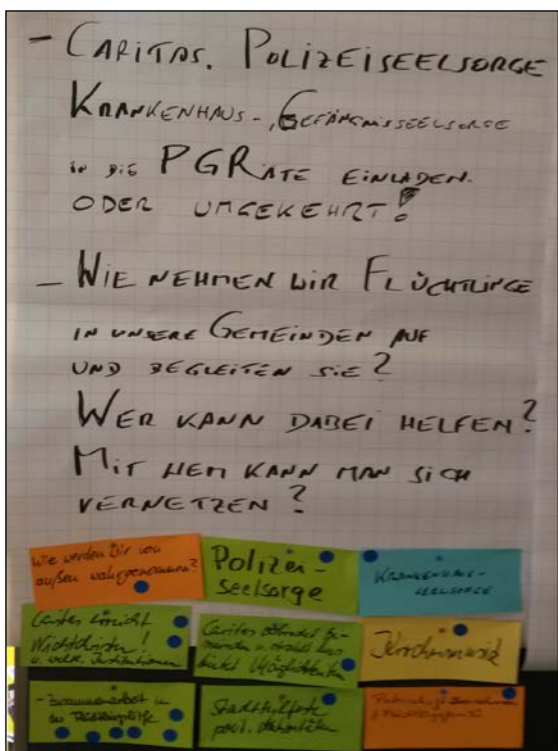 - CARITAS, POLIZEISEELSORGE
KRANKENHAUS-, GEFÄNGNISSEELSORGE
IN DIE PGRÄTE EINLADEN.
ODER UMGEKEHRT!
- WIE NEHMEN WIR FLÜCHTLINGE
IN UNSERE GEMEINDEN AUF
UND BEGLEITEN SIE?
WER KANN DABEI HELFEN?
MIT WEM KANN MAN SICH
VERNETZEN?
Wie werden wir von
außen wahrgenommen?
Polizei-
seelsorge
KRANKENHAUS-
SEELSORGE
Caritas erreicht
Nichtchristen!
u. Institutionen
Caritas
Möglichkeiten
Kirchenmusik
- Zusammenarbeit in
der Flüchtlingshilfe
Stadtteilfeste